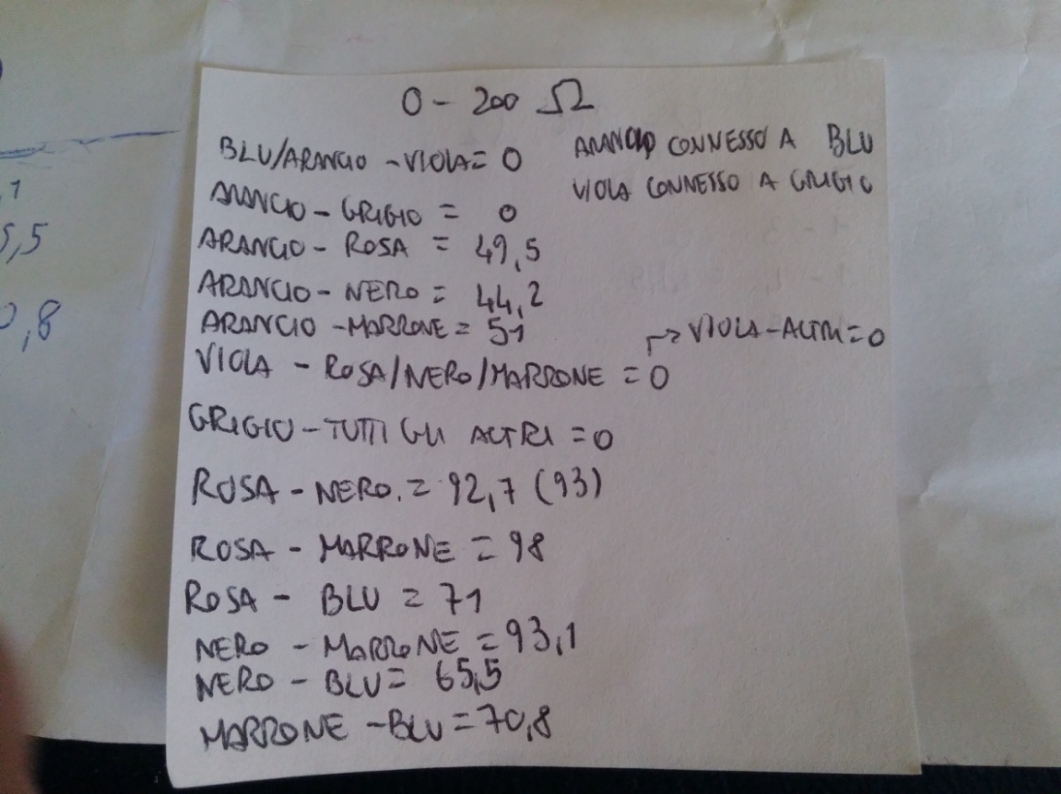 0 - 200 Ω
BLU/ARANCIO - VIOLA = 0
ARANCIO CONNESSO A BLU
VIOLA CONNESSO A GRIGIO
ARANCIO - GRIGIO = 0
ARANCIO - ROSA = 49,5
ARANCIO - NERO = 44,2
ARANCIO - MARRONE = 51
→ VIOLA - ALTRI = 0
VIOLA - ROSA/NERO/MARRONE = 0
GRIGIO - TUTTI GLI ALTRI = 0
ROSA - NERO. = 92,7 (93)
ROSA - MARRONE = 98
ROSA - BLU = 71
NERO - MARRONE = 93,1
NERO - BLU = 65,5
MARRONE - BLU = 70,8
5,5
,8